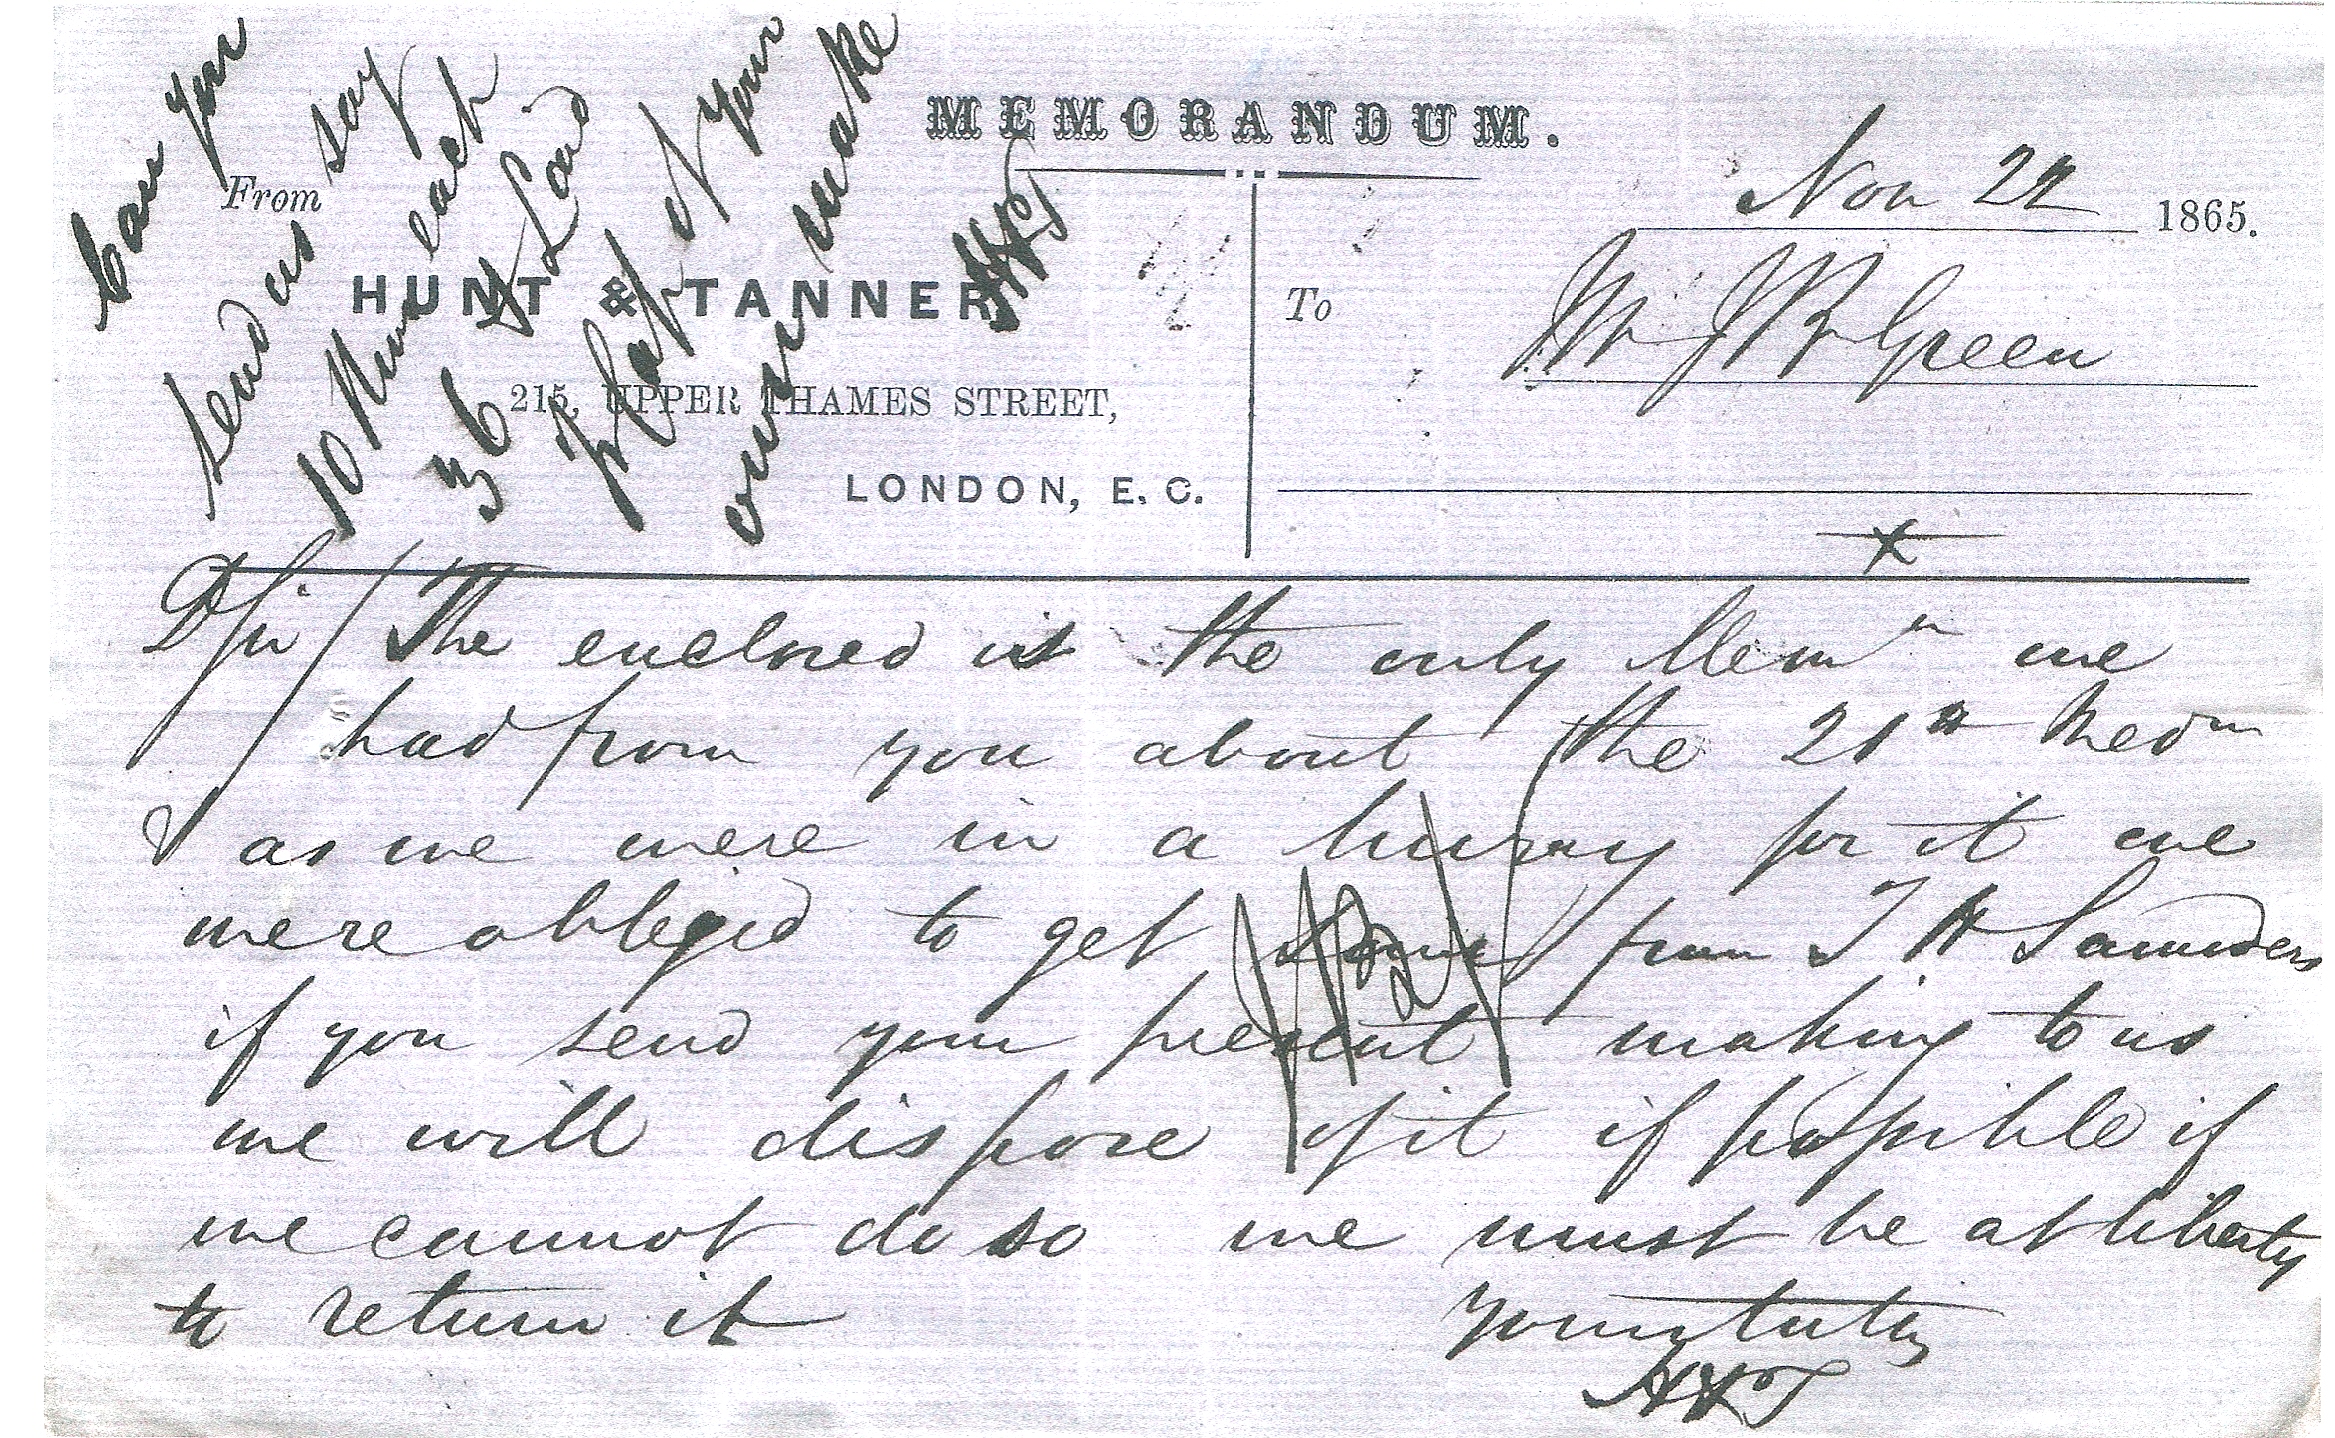 MEMORANDUM.
Nov 22 1865.
From
HUNT & TANNER
215, UPPER THAMES STREET,
LONDON, E. C.
To
Mr J B Green
Can you
send us say
10 Rms each
36 & Laid
F Cap of your
own make
H&T
D Sir / The enclosed is the only Memm we
had from you about the 21 lb Medm
& as we were in a hurry for it we
were obliged to get some from T H Saunders
if you send your present making to us
we will dispose of it if possible if
we cannot do so we must be at liberty
to return it
Yours truly
H&T